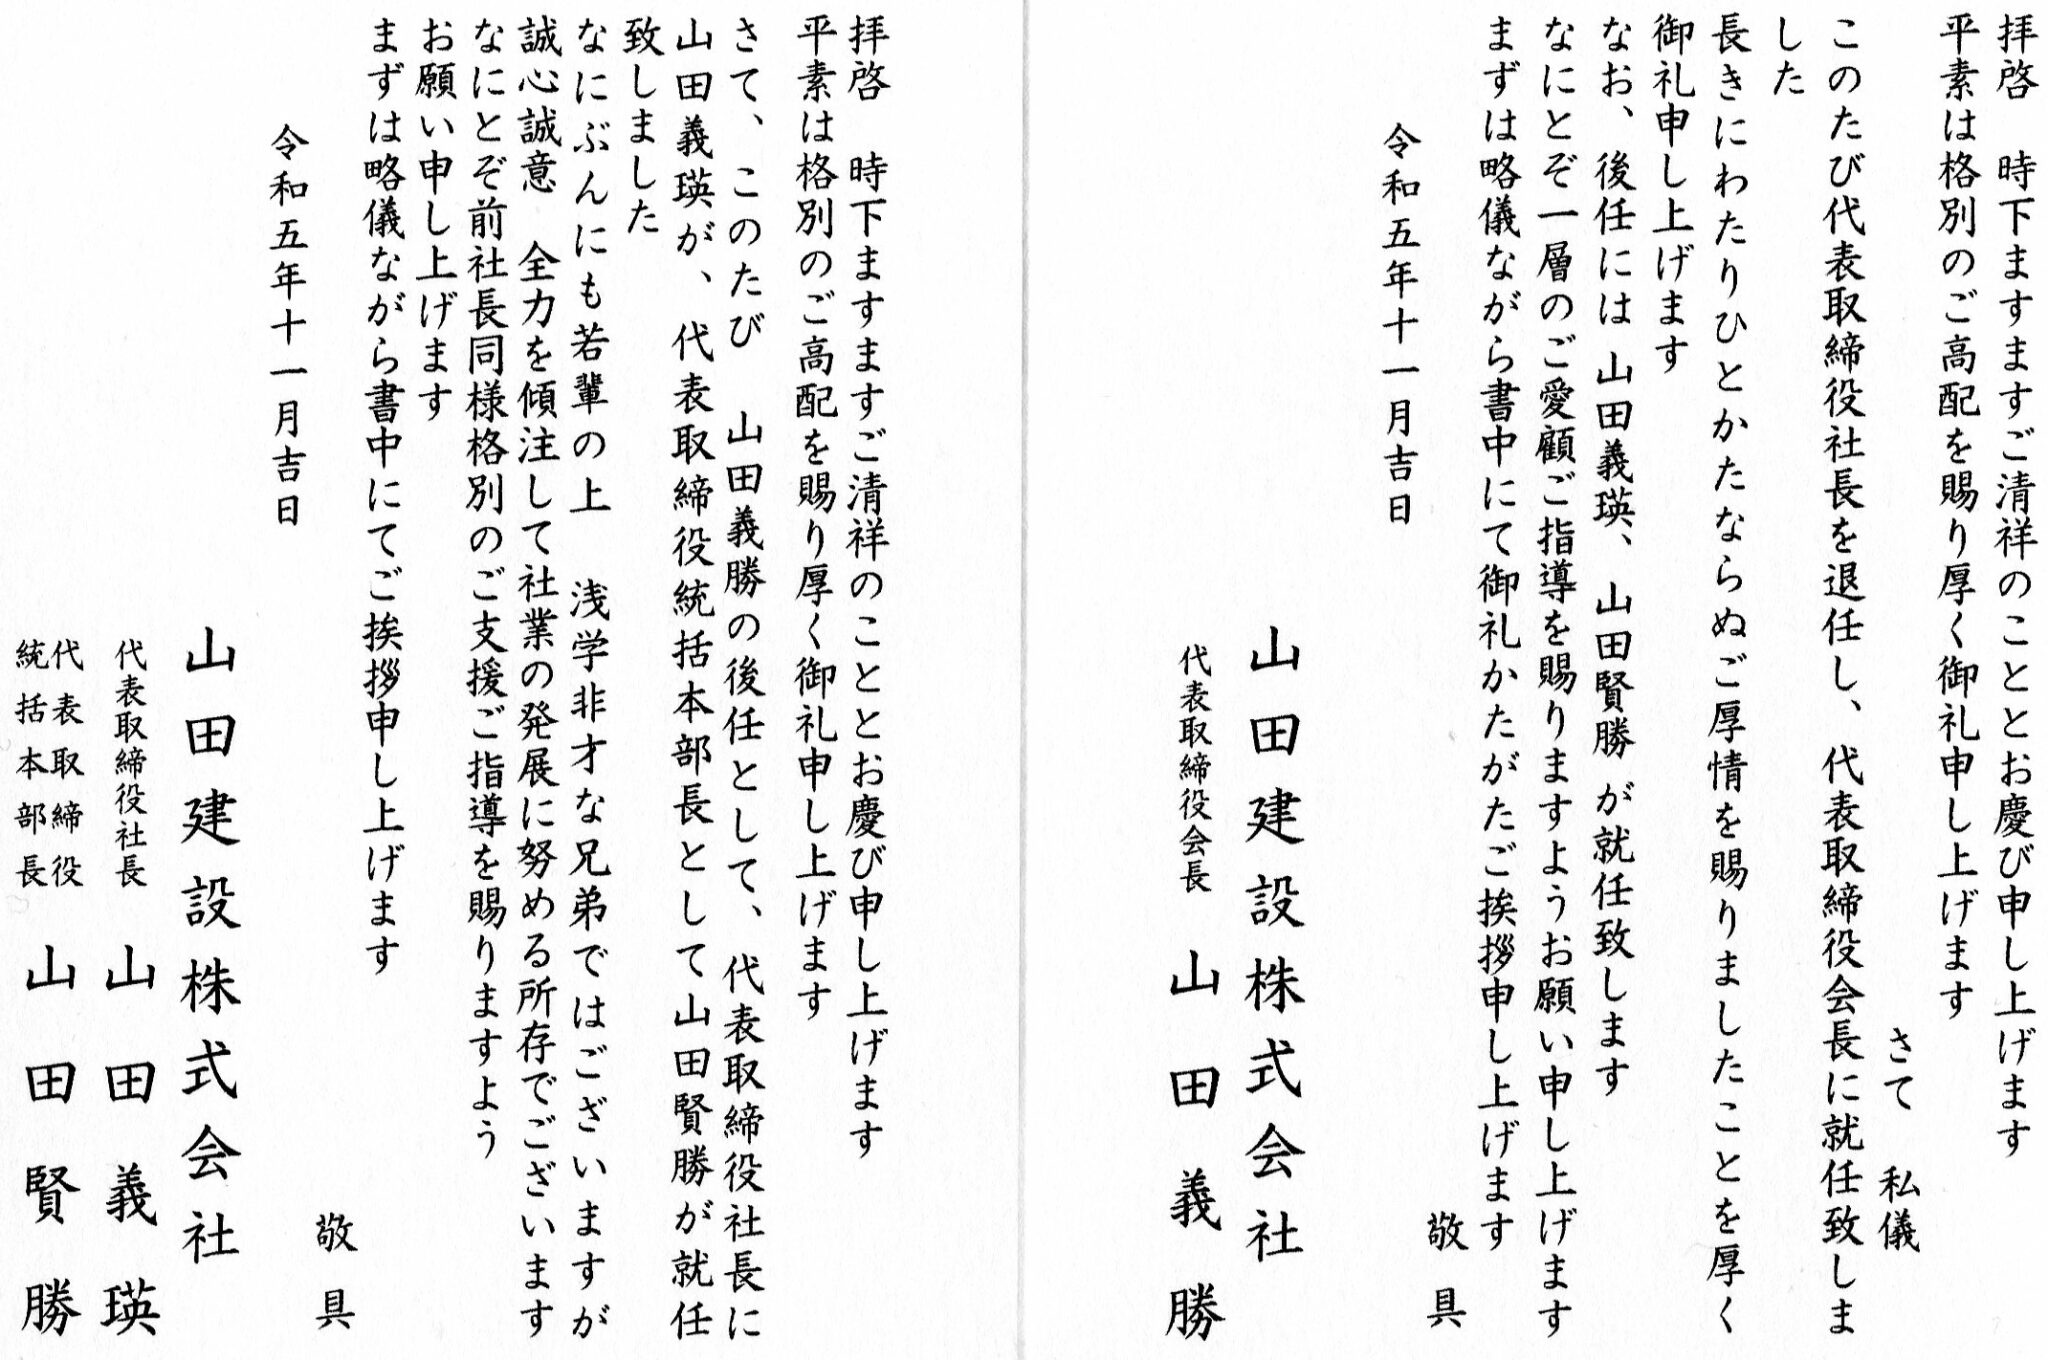 拝啓　時下ますますご清祥のこととお慶び申し上げます
平素は格別のご高配を賜り厚く御礼申し上げます
さて　私儀
このたび代表取締役社長を退任し、代表取締役会長に就任致しま
した
長きにわたりひとかたならぬご厚情を賜りましたことを厚く
御礼申し上げます
なお、後任には山田義瑛、山田賢勝が就任致します
なにとぞ一層のご愛顧ご指導を賜りますようお願い申し上げます
まずは略儀ながら書中にて御礼かたがたご挨拶申し上げます
敬具
令和五年十一月吉日
山田建設株式会社
代表取締役会長　山田義勝
拝啓　時下ますますご清祥のこととお慶び申し上げます
平素は格別のご高配を賜り厚く御礼申し上げます
さて、このたび　山田義勝の後任として、代表取締役社長に
山田義瑛が、代表取締役統括本部長として山田賢勝が就任
致しました
なにぶんにも若輩の上　浅学非才な兄弟ではございますが
誠心誠意　全力を傾注して社業の発展に努める所存でございます
なにとぞ前社長同様格別のご支援ご指導を賜りますよう
お願い申し上げます
まずは略儀ながら書中にてご挨拶申し上げます
敬具
令和五年十一月吉日
山田建設株式会社
代表取締役社長　山田義瑛
代表取締役
統括本部長　山田賢勝